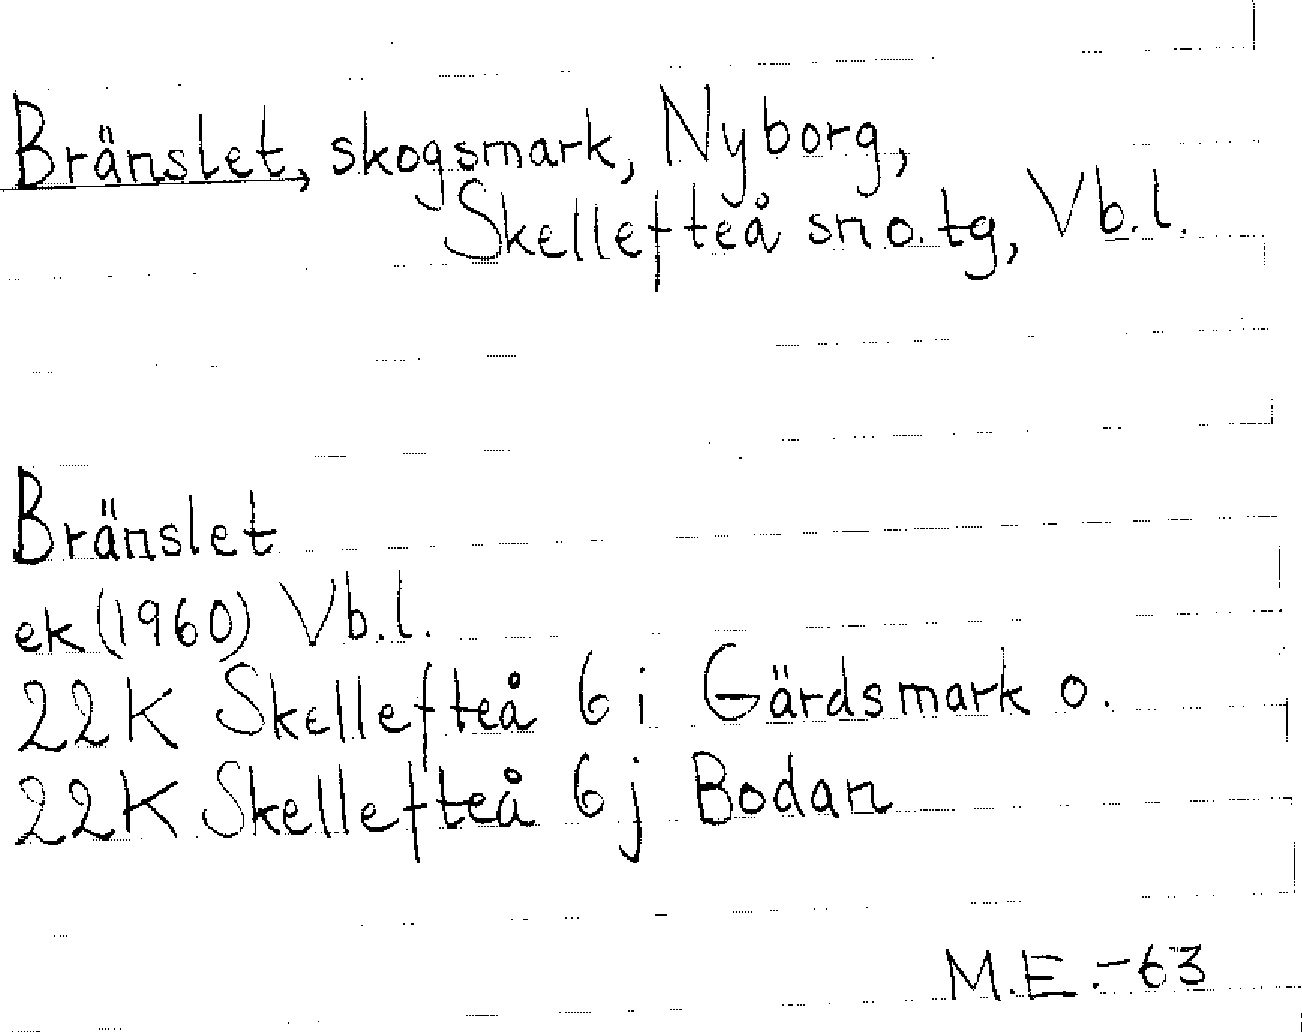 Bränslet, skogsmark, Nyborg,
Skellefteå sn o. tg, Vb.l.
Bränslet
ek (1960) Vb.l.
22K Skellefteå 6 i Gärdsmark o.
22K Skellefteå 6 j Bodan
M.E.-63